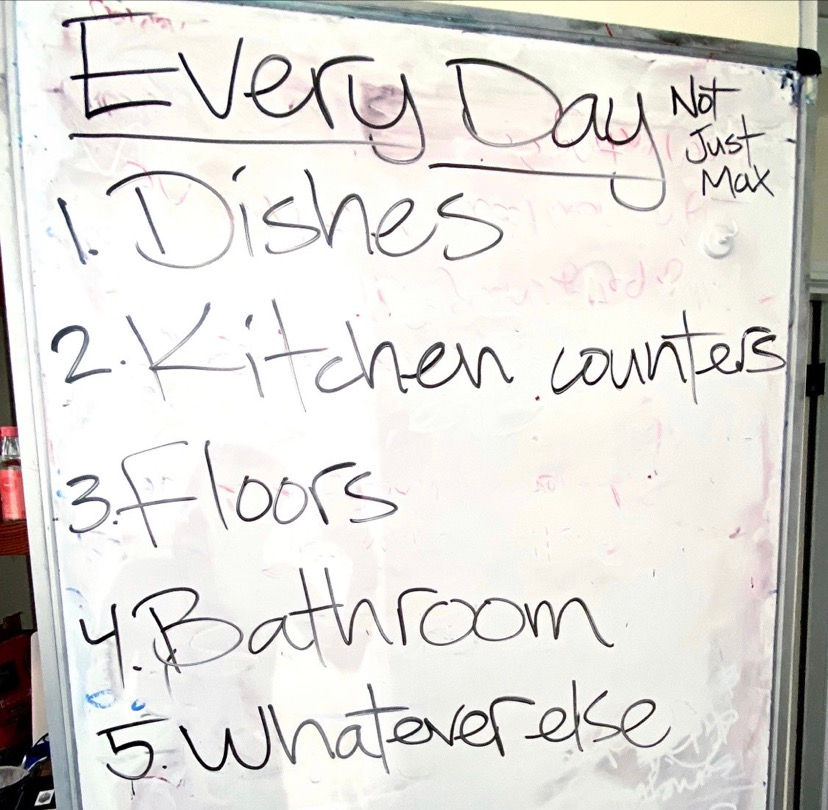 Every Day
Not
Just
Max
1. Dishes
2. Kitchen counters
3. Floors
4. Bathroom
5. Whatever else